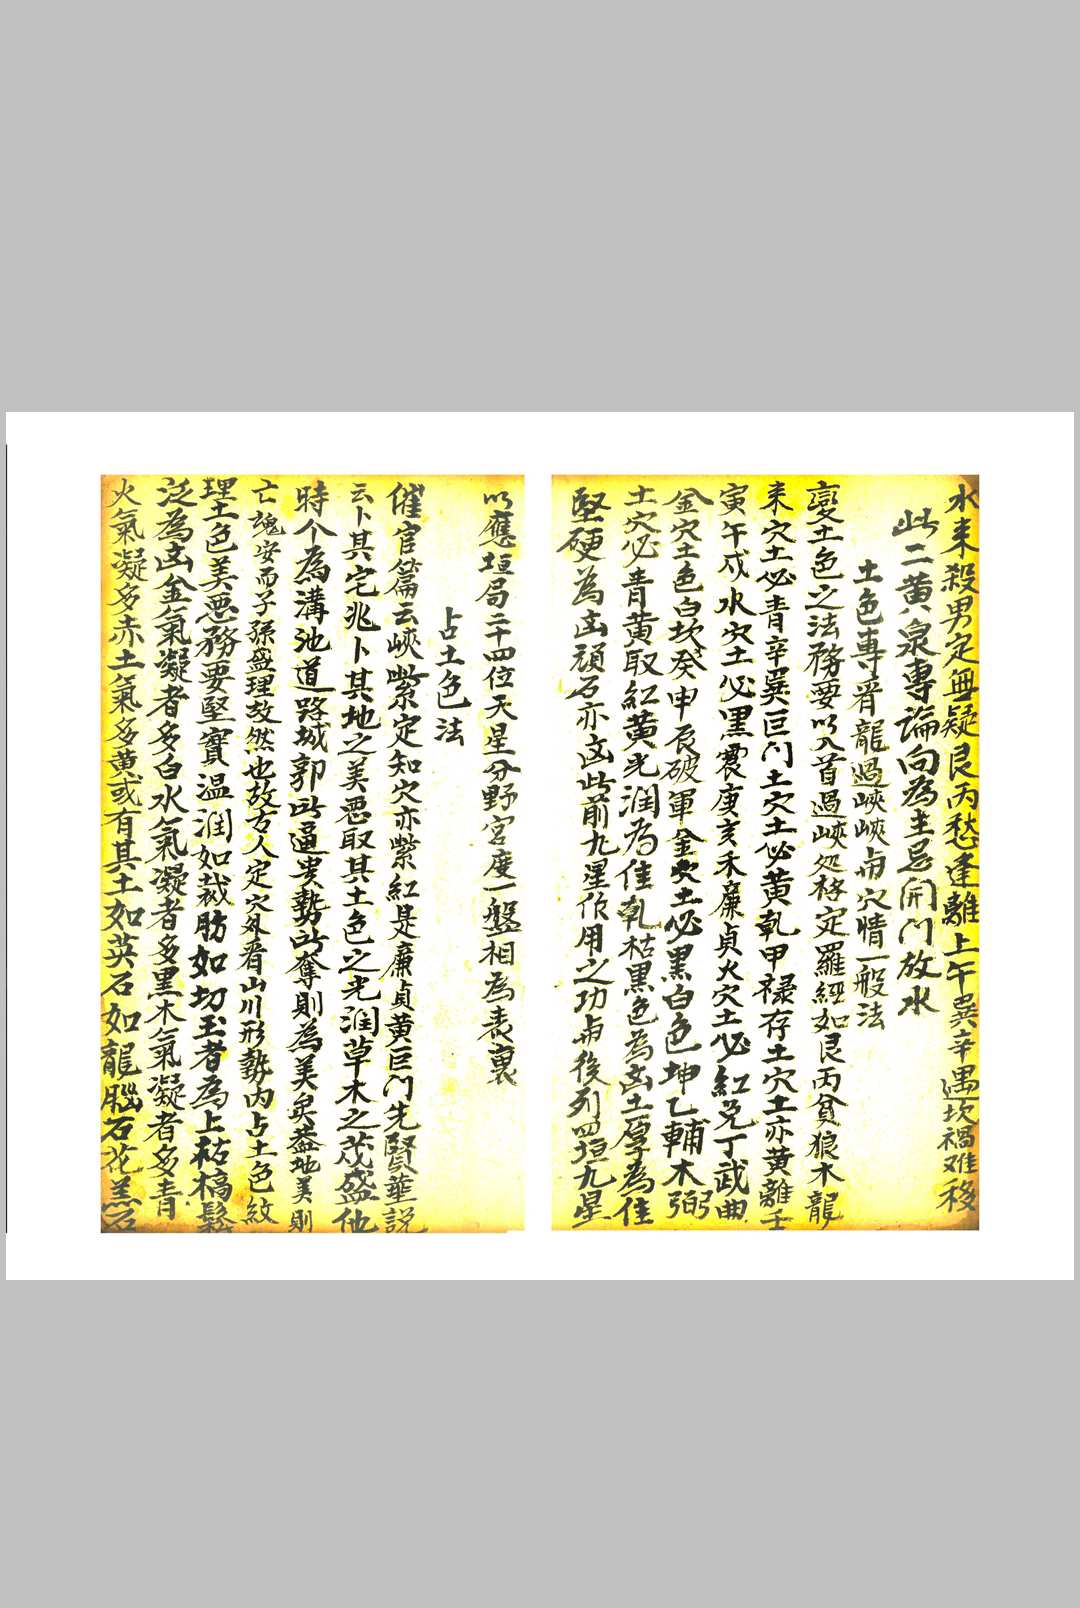 水来殺男定無疑艮丙愁逢離上午巽辛遇坎禍难移
此二黄八泉專論向為主忌開门放水
土色專看龍過峽峽與穴情一般法
變土色之法務要以入首過峽处格定羅經如艮丙貪狼木龍
来穴土必青辛巽巨门土穴土必黄乾甲禄存土穴土亦黄離壬
寅午戍水穴土必黑震庚亥未廉貞火穴土必紅兑丁武曲
金穴土色白坎癸申辰破軍金穴土必黑白色坤乙輔木弼
土穴必青黄取紅黄光润為佳乾枯黑色為凶土厚為佳
堅硬為凶頑石亦凶此前九星作用之功與後列四垣九星
以應垣局二十四位天星分野宮度一盤相為表裏
占土色法
催官篇云峽紫定知穴亦紫紅是廉貞黄巨门先賢葢説
云卜其宅兆卜其地之美恶取其土色之光润草木之茂盛他
時个為溝池道路城郭所逼贵勢所奪則為美矣葢地美則
亡魂安而子孫盛理故然也故方人定穴外看山川形勢内占土色紋
理土色美恶務要堅實温润如裁肪如切玉者為上枯槁鬆
泛為凶金氣凝者多白水氣凝者多黑木氣凝者多青
火氣凝多赤土氣多黄或有其土如英石如龍腦石花羔石